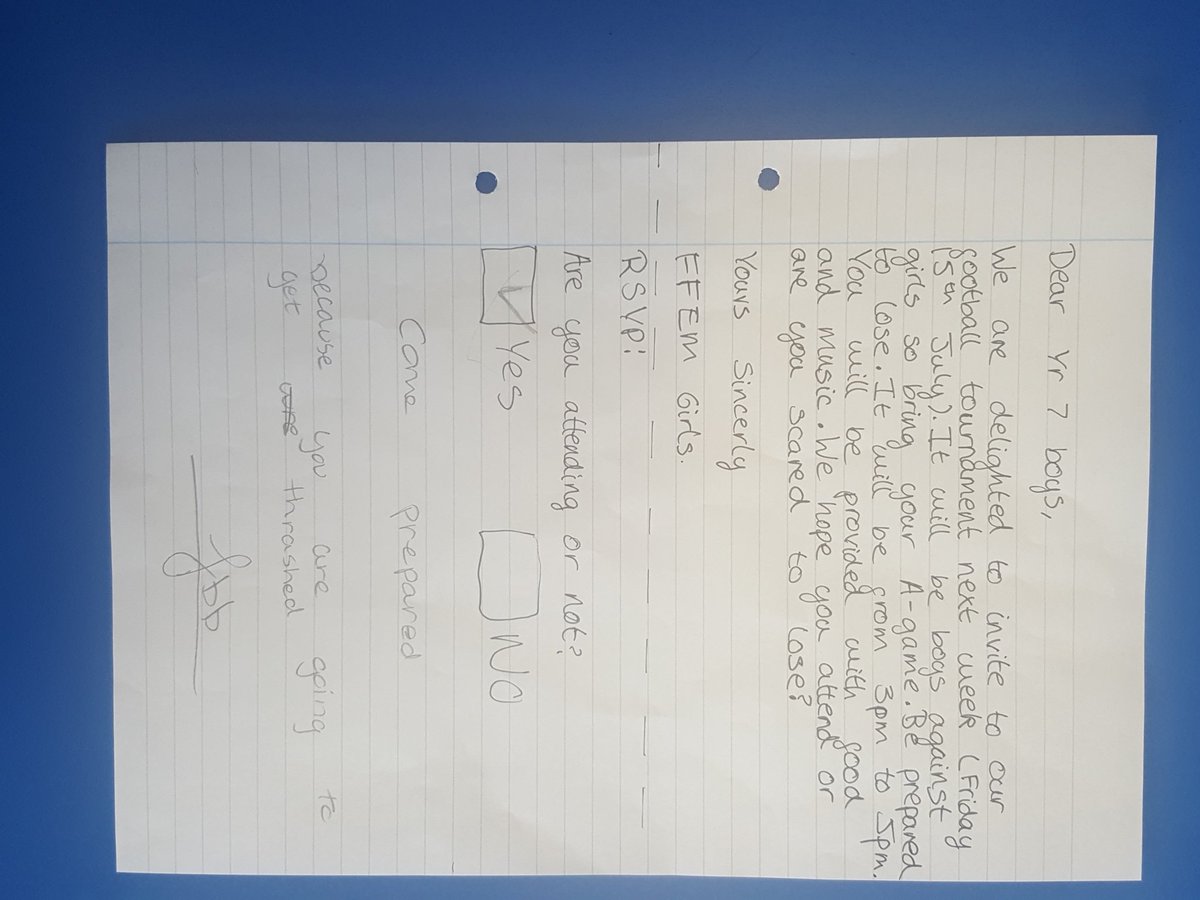 Dear Yr 7 boys,
We are delighted to invite to our
football tournament next week (Friday
15th July). It will be boys against
girls so bring your A-game. Be prepared
to lose. It will be from 3pm to 5pm.
You will be provided with food
and music. We hope you attend or
are you scared to lose?
Yours Sincerly
FFEM Girls.
RSVP:
Are you attending or not?
Yes NO
Come prepared
because you are going to
get thrashed